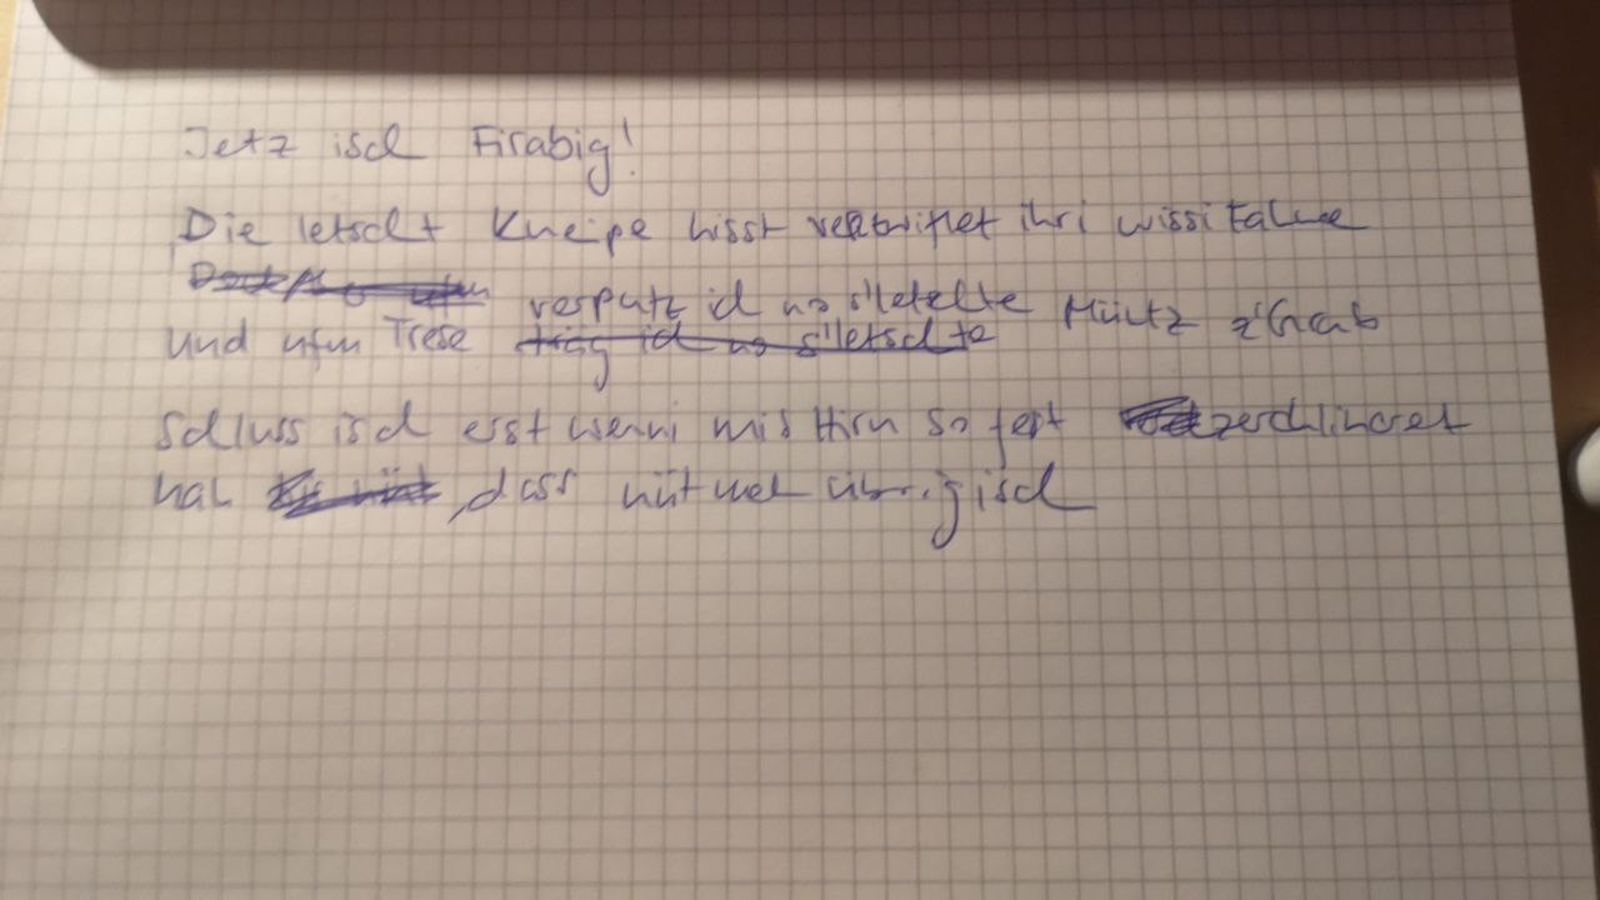 Jetz isch Firabig!
Die letscht Kneipe hisst verzwiflet ihri wissi Fahne
verputz ich no s'letschte Müntz z'Grab
Und ufm Trese träg ich no s'letschte
Schluss isch erst wenni mis Hirn so fest
hah , dass nüt meh übrig isch